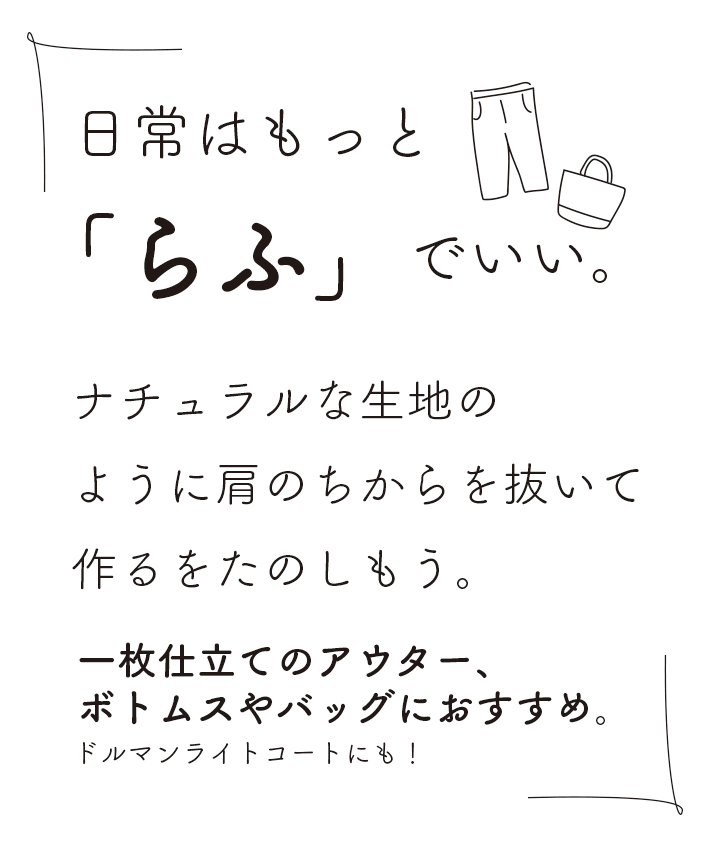 日常はもっと
「らふ」でいい。
ナチュラルな生地の
ように肩のちからを抜いて
作るをたのしもう。
一枚仕立てのアウター、
ボトムスやバッグにおすすめ。
ドルマンライトコートにも！